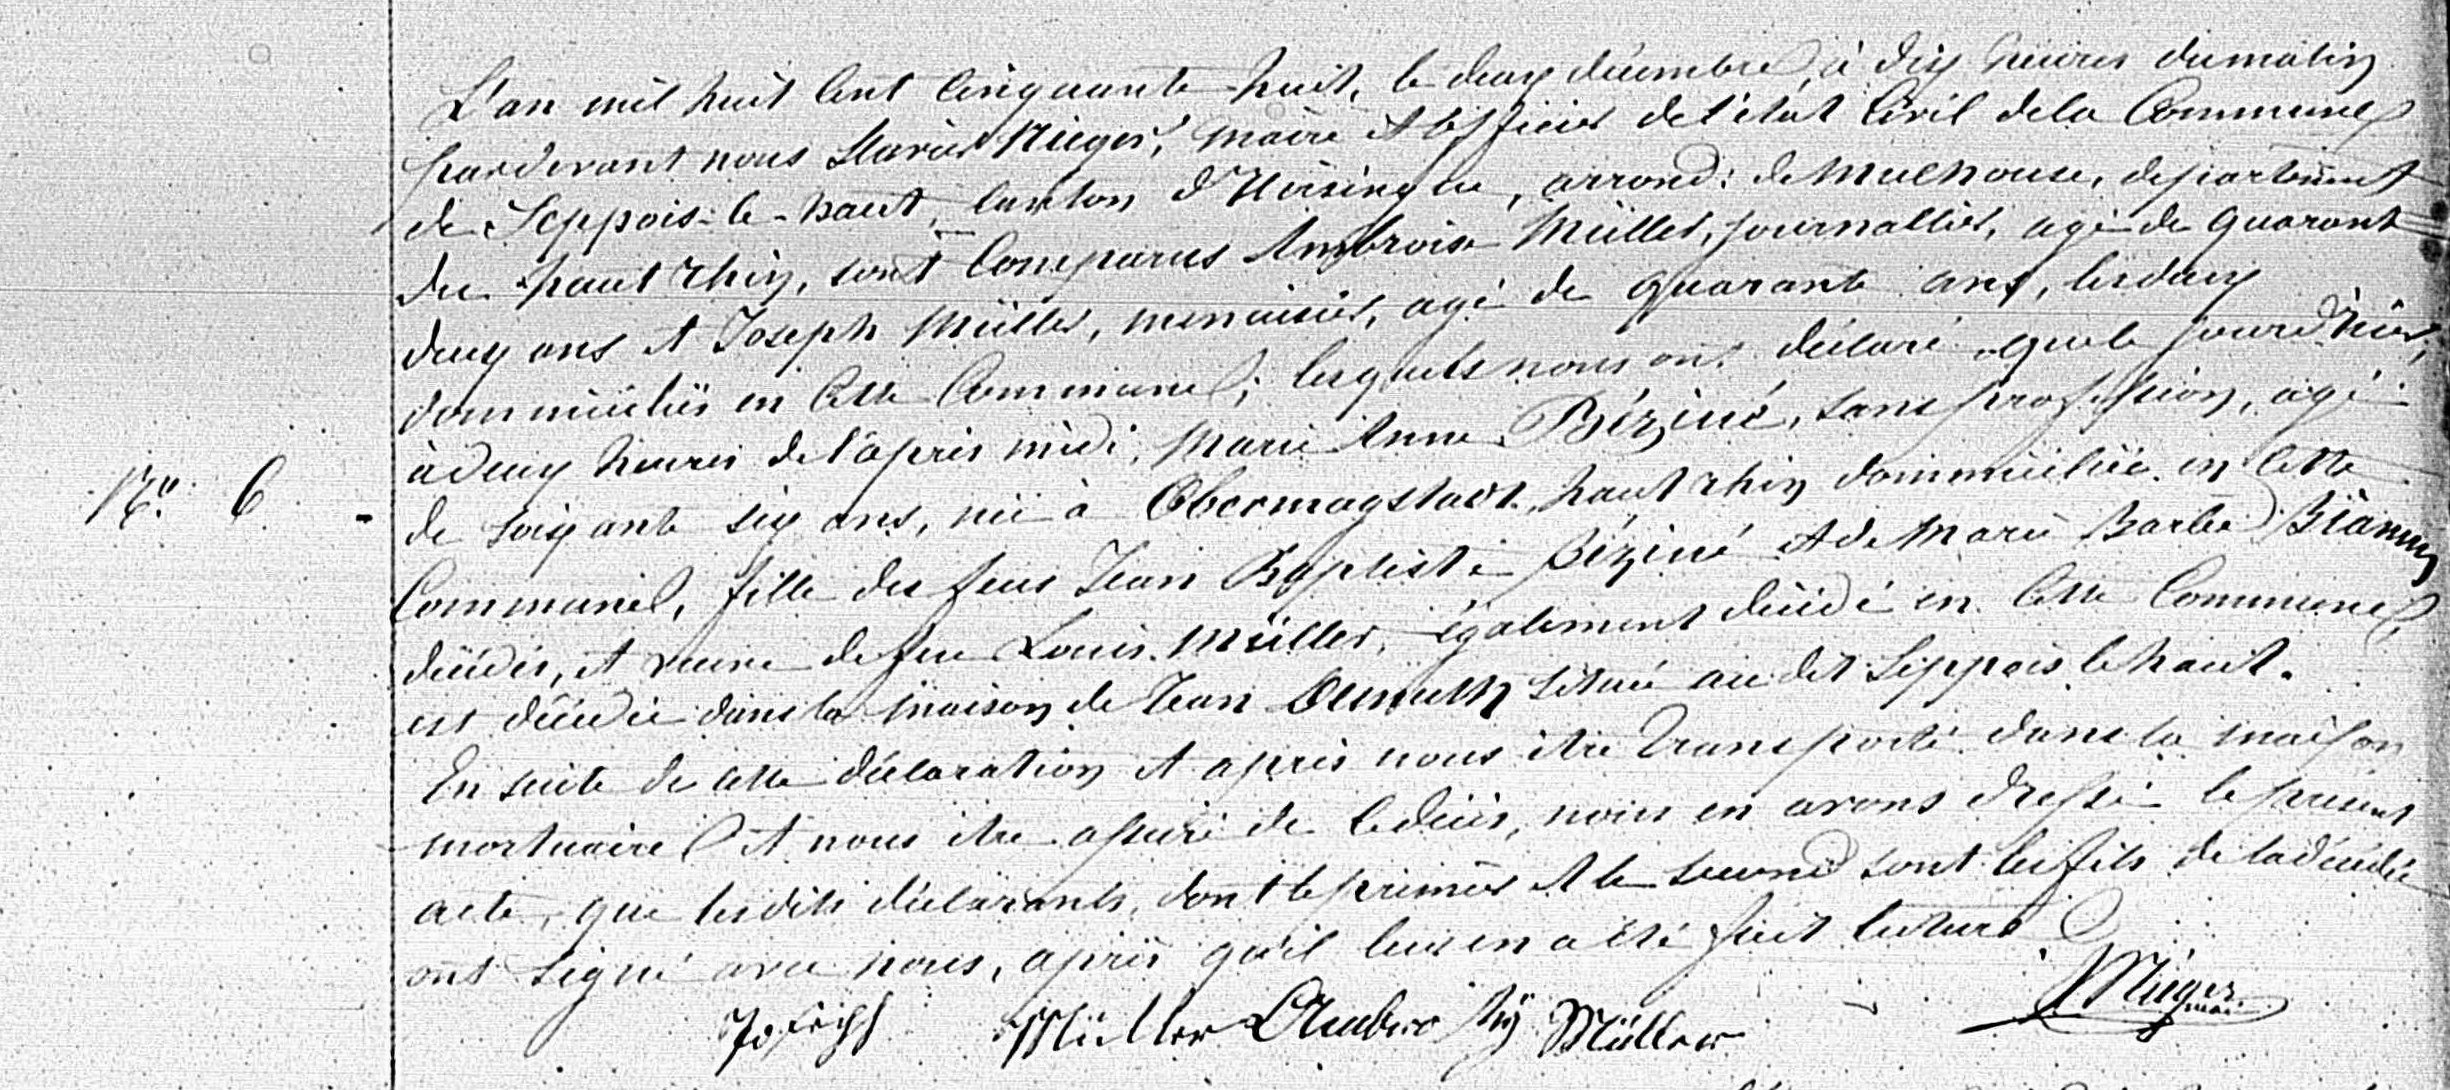 L'an mil huit cent cinquante huit, le deux décembre, à dix heures du matin
pardevant nous Xavier Mieger, maire et officier de l'état civil de la Commune
de Seppois-le-haut, canton d'Hirsingue, arrond: de Mulhouse, departement
du haut rhin, sont comparus Ambroise Müller, journallier, agé de quarante
deux ans et Joseph Müller, menuisier, agé de quarante ans, les deux
dommiciliés en cette Commune; lesquels nous ont déclaré que le jour d'hier,
à deux heures de l'après midi, Marie Anne Béziné, sans profession, agé
de soixante six ans, née à Obermagstadt, haut rhin dommiciliée en cette
Commune, fille des feus Jean Baptiste Béziné et de Marie Barbe
décédés, et veuve de feu Louis Müller, également décédé en cette Commune,
est décédée dans la maison de Jean situé au dit Seppois le haut.
En suite de cette déclaration et après nous être transporté dans la maison
mortuaire et nous être assuré de ce décès, nous en avons dressé le présent
acte, que lesdits déclarants, dont le premier et le second sont les fils de la décédée
ont signé avec nous, après qu'il leur en a été fait lecture
Nº 6
Joseph Müller Ambrosy Müller
Mieger